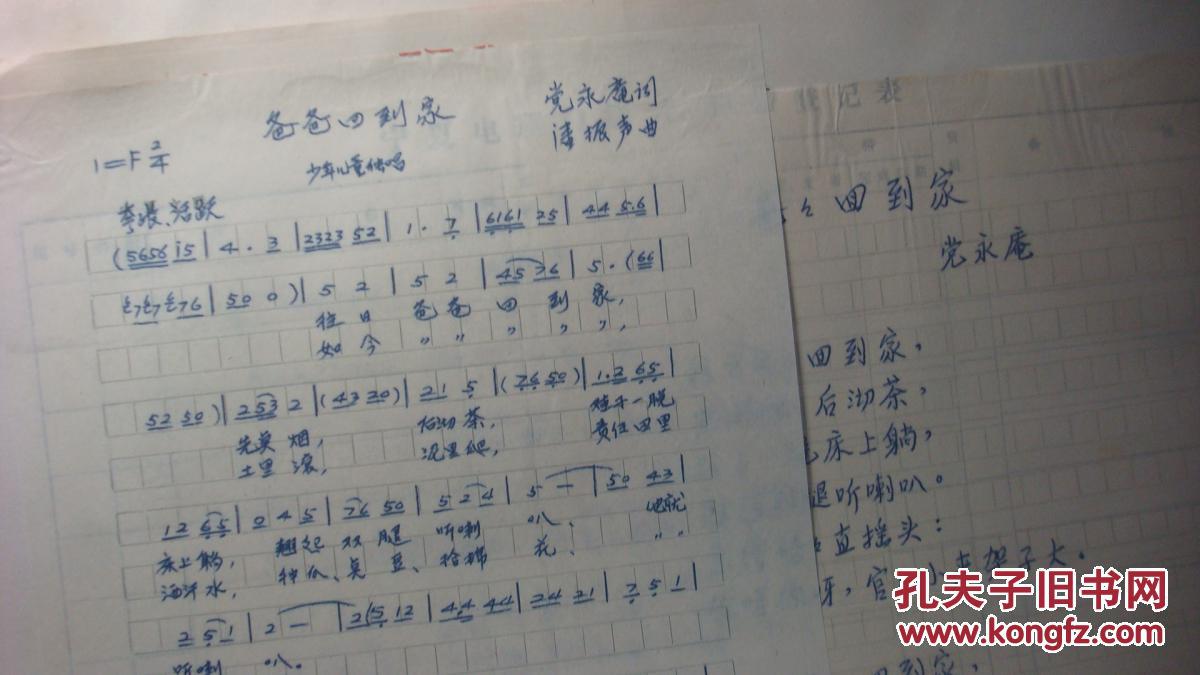 爸爸回到家
党永庵词
振声曲
1=F 2/4
少年儿童独唱
活跃
(5656 i5|4.3|2323 52|1.7|6161 25|44 5.6|
76|50 0)|5 2|5 2|4576|5.(66|
往日 爸爸 回到家,
如今 〃 〃 〃 〃 〃,
52 50)|253 2|(43 20)|21 5|(76 50)|1.2 65|
先莫烟, 后沏茶, 鞋子一脱
土里滚, 泥里爬, 责任田里
12 65|0 4 5|76 50|5 24|5 —|50 43|
床上躺, 翘起双腿 听喇叭, 他就
洒汗水, 种瓜、点豆、拾棉花、 〃 〃
2 51|2 —|2(5 12|44 44|24 21|7 5 1|
听喇叭。
回到家
党永庵
回到家,
后沏茶,
床上躺,
腿听喇叭。
直摇头:
官 架子大。
回到家,
孔夫子旧书网
www.kongfz.com